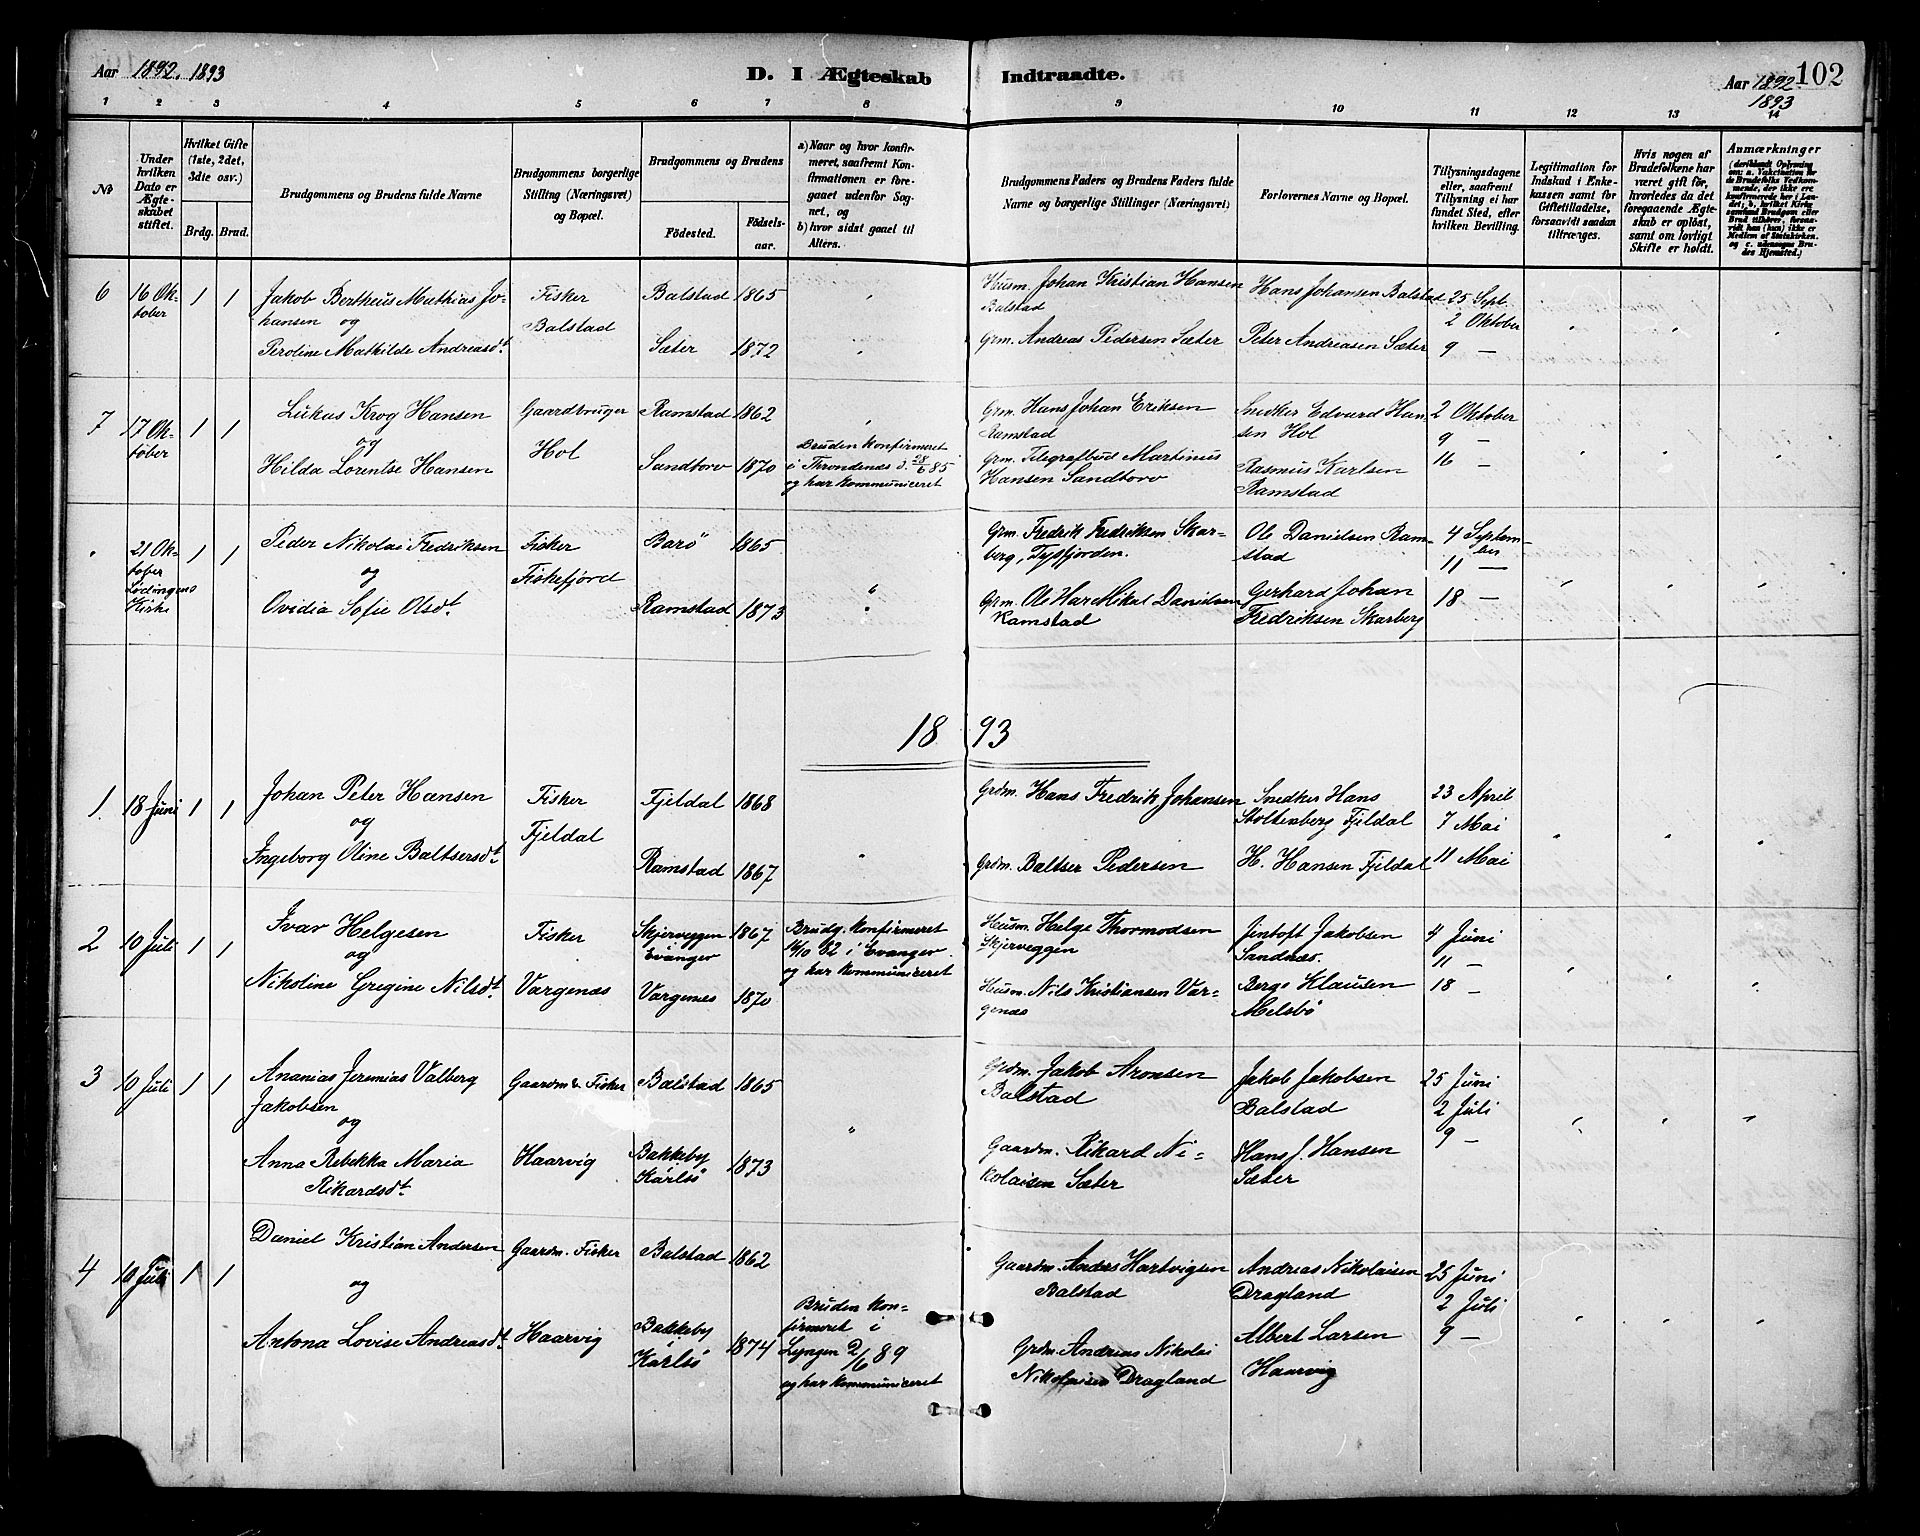 Aar 1892. 1893
D. I Ægteskab Indtraadte.
Aar 1892. 102
1893
1 2 3 4 5 6 7 8 9 10 11 12 13 14
No
Under hvilken Dato er Ægteskabet stiftet.
Hvilket Gifte (1ste, 2det, 3die osv.)
Brdg. Brud.
Brudgommens og Brudens fulde Navne
Brudgommens borgerlige Stilling (Næringsvei) og Bopæl.
Brudgommens og Brudens
Födested.
Födselsaar.
a) Naar og hvor konfirmeret, saafremt Konfirmationen er foregaaet udenfor Sognet, og
b) hvor sidst gaaet til Alters.
Brudgommens Faders og Brudens Faders fulde Navne og borgerlige Stillinger (Næringsvei)
Forlovernes Navne og Bopæl.
Tillysningsdagene eller, saafremt Tillysning ei har fundet Sted, efter hvilken Bevilling.
Legitimation for Indskud i Enkekassen samt for Giftetilladelse, forsaavidt saadan tiltrænges.
Hvis nogen af Brudefolkene har været gift för, hvorledes da det foregaaende Ægteskab er oplöst, samt om lovligt Skifte er holdt.
Anmærkninger
6 16 Oktober 1 1
Jakob Bertheus Mathias Johansen og
Peroline Mathilde Andreasdt.
Fisker
Balstad
Balstad 1865
Sæter 1872
Husm. Johan Kristian Hansen
Balstad
Grm. Andreas Pedersen Sæter
Hans Johansen Balstad
Peter Andreasen Sæter
25 Sept.
2 Oktober
9 —
7 17 Oktober 1 1
Lukas Krog Hansen
og
Hilda Lorentse Hansen
Gaardbruger
Hol
Ramstad 1862
Sandtorv 1870
Bruden konfirmeret
i Throndenæs d. 28/6 85
og har kommuniceret
Grm. Hans Johan Eriksen
Ramstad
Grm. Telegrafbud Martinius
Hansen Sandtorv
Snedker Edvard Hansen Hol
Rasmus Karlsen
Ramstad
2 Oktober
9 —
16 —
" 21 Oktober Lødingens Kirke 1 1
Peder Nikolai Fredriksen
og
Ovidia Sofie Olsdt.
Fisker
Fiskefjord
Barö 1865
Ramstad 1873
Grm. Fredrik Fredriksen Skarberg, Tysfjorden.
Grm. Ole Har Mikal Danielsen
Ramstad
Ole Danielsen Ramstad
Gerhard Johan
Fredriksen Skarberg
4 September
11 —
18 —
1893
1. 18 Juni 1 1
Johan Peter Hansen
og
Ingeborg Oline Baltsersdt.
Fisker
Fjeldal
Fjeldal 1868
Ramstad 1867
Grdm. Hans Fredrik Johansen
Grdm. Baltser Pedersen
Snedker Hans
Stoltenberg Fjeldal
H. Hansen Fjeldal
23 April
7 Mai
11 Mai
2 10 Juli 1 1
Ivar Helgesen
og
Nikoline Gregine Nilsdt.
Fisker
Vargenæs
Skjerveggen
Evanger 1867
Vargenæs 1870
Brudg. konfirmeret
/10 82 i Evanger
og har kommuniceret
Husm. Helge Thormodsen
Skjerveggen
Husm. Nils Kristiansen Vargenæs
Jentoft Jakobsen
Sandnæs.
Berge Klausen
Melsbö
4 Juni
11 —
18 —
3 10 Juli 1 1
Ananias Jeremias Valberg
Jakobsen
og
Anna Rebekka Maria
Rikardsdt.
Gaardm & Fisker
Haarvig
Balstad 1865
Bakkeby
Karlsö 1873
Grdm. Jakob Aronsen
Balstad
Gaardm. Rikard Nikolaisen Sæter
Jakob Jakobsen
Balstad
Hans J. Hansen
Sæter
25 Juni
2 Juli
9 —
4 10 Juli 1 1
Daniel Kristian Andersen
og
Antona Lovise Andreasdt.
Gaardm. Fisker
Haarvig
Balstad 1862
Bakkeby
Karlsö 1874
Bruden konfirmeret i
Lyngen 2/6 89
og har kommuniceret
Gaardm. Anders Hartvigsen
Balstad
Grdm. Andreas Nikolai
Nikolaisen Dragland
Andreas Nikolaisen
Dragland
Albert Larsen
Haarvig
25 Juni
2 Juli
9 —